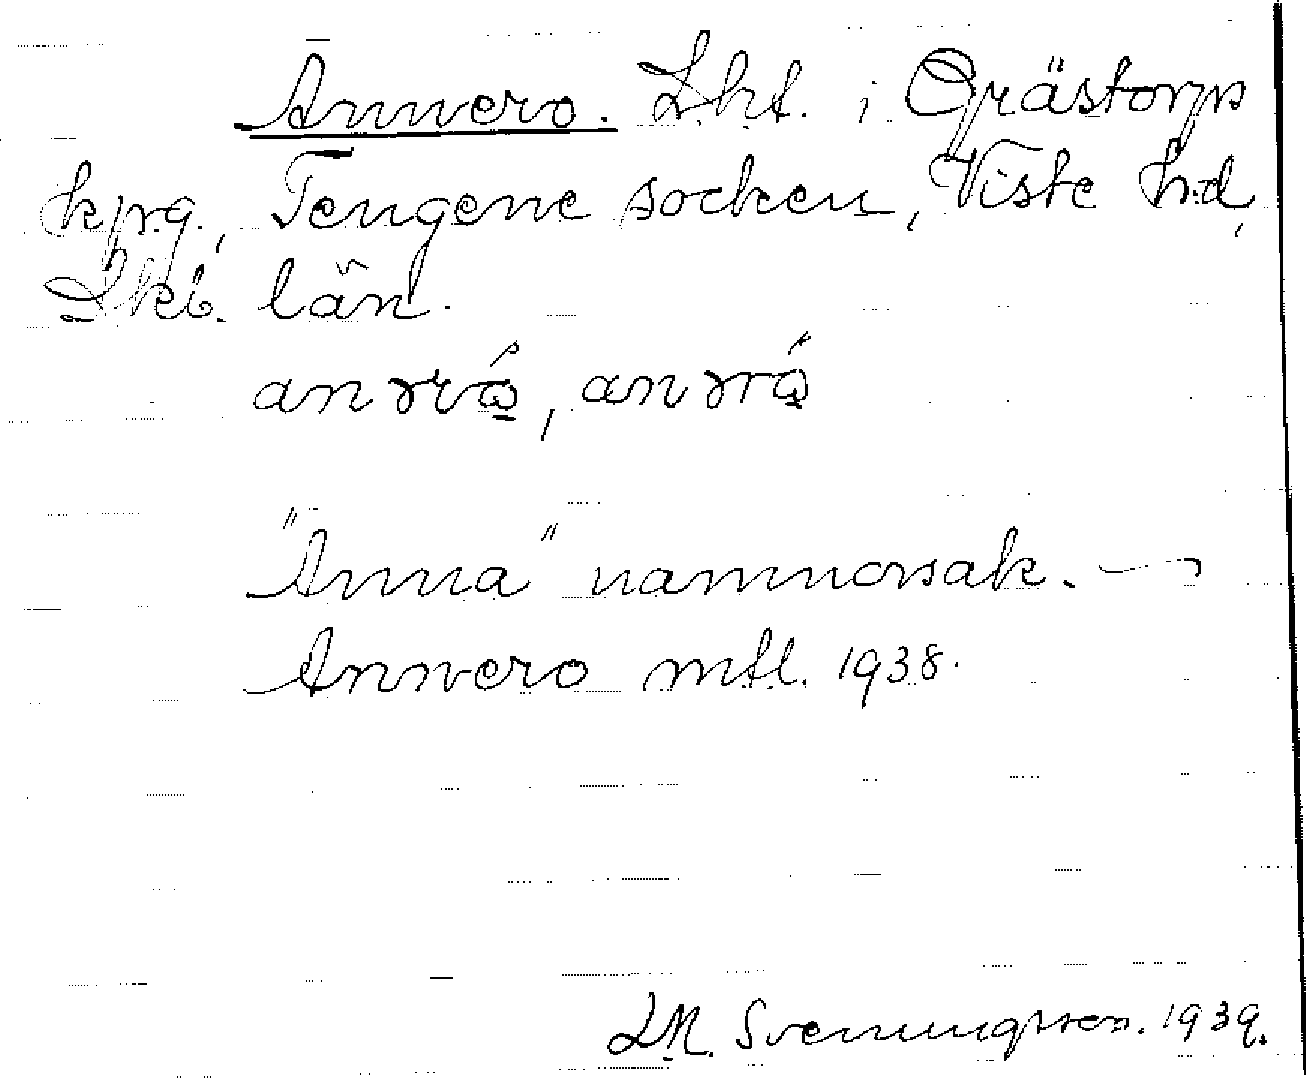 Annero. Lht. i Grästorps
kpg., Tengene socken, Viste hd,
Skb. län.
"Anna" namnorsak. —
Annero mtl. 1938.
Svenungsson. 1939.